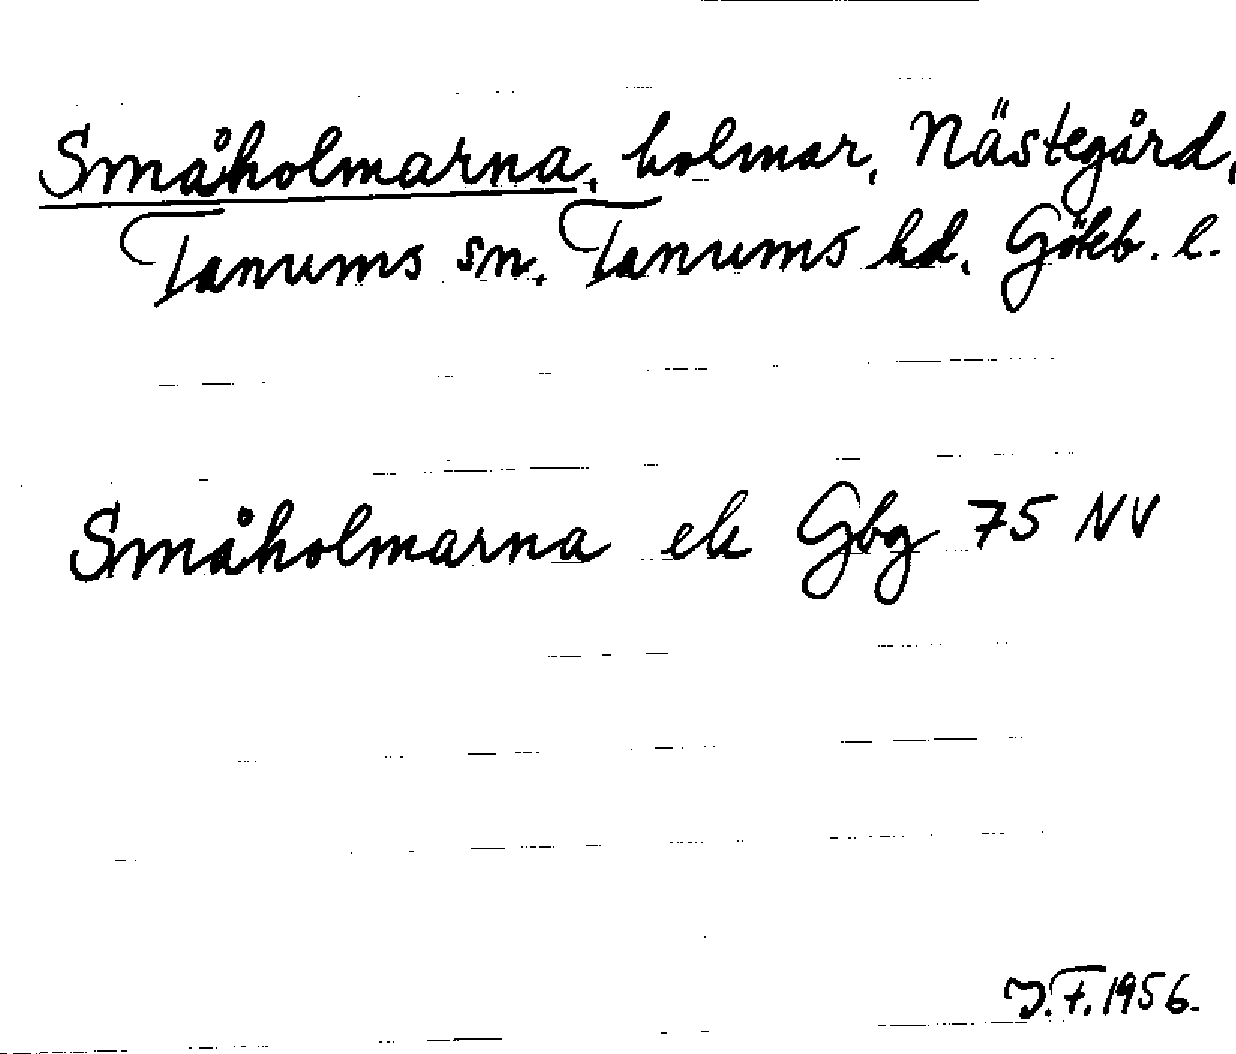 Småholmarna, holmar, Nästegård,
Tanums sn. Tanums hd. Göteb. l.
Småholmarna ek Gbg 75 NV
J.F. 1956.